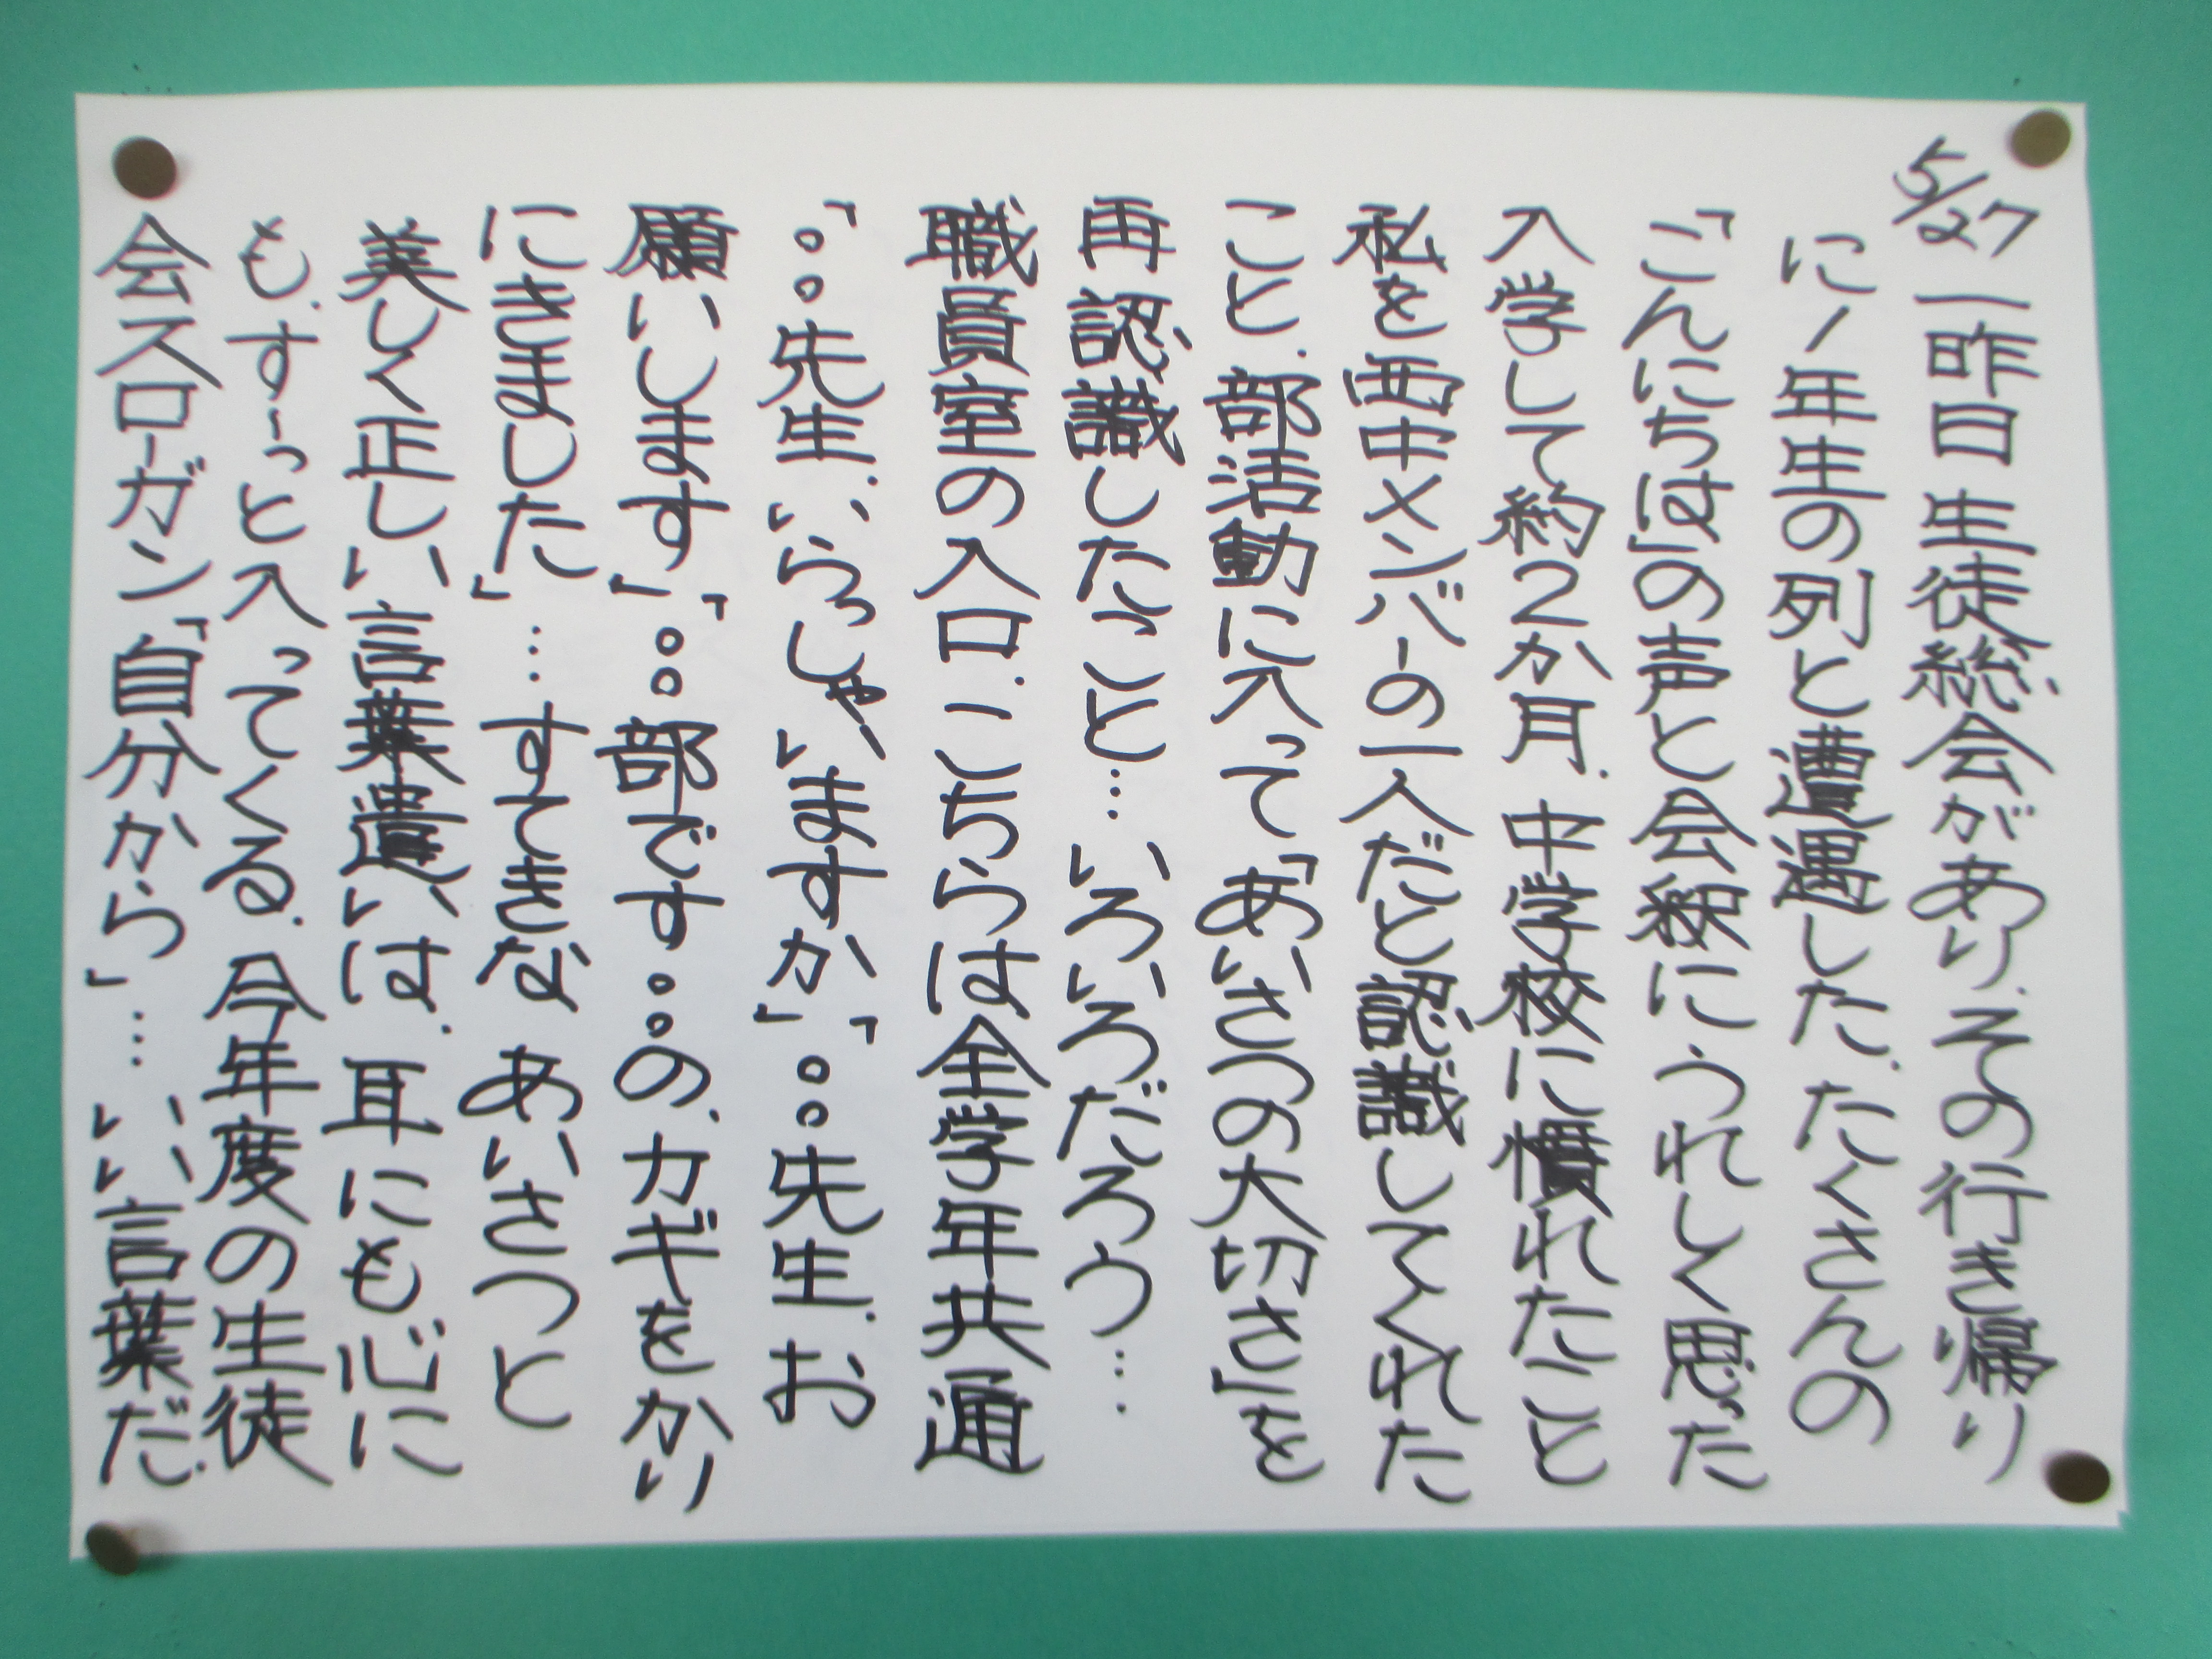 5/27
一昨日生徒総会があり、その行き帰り
に1年生の列と遭遇した。たくさんの
「こんにちは」の声と会釈にうれしく思った
入学して約2か月、中学校に慣れたこと
私を西中メンバーの一人だと認識してくれた
こと、部活動に入って「あいさつの大切さ」を
再認識したこと…いろいろだろう…
職員室の入口、こちらは全学年共通
「○○先生、いらっしゃいますか」「○○先生、お
願いします」「○○部です。○○の、カギをかり
にきました」…すてきなあいさつと
美しく正しい言葉遣いは、耳にも心に
も、すーっと入ってくる。今年度の生徒
会スローガン「自分から」…いい言葉だ。